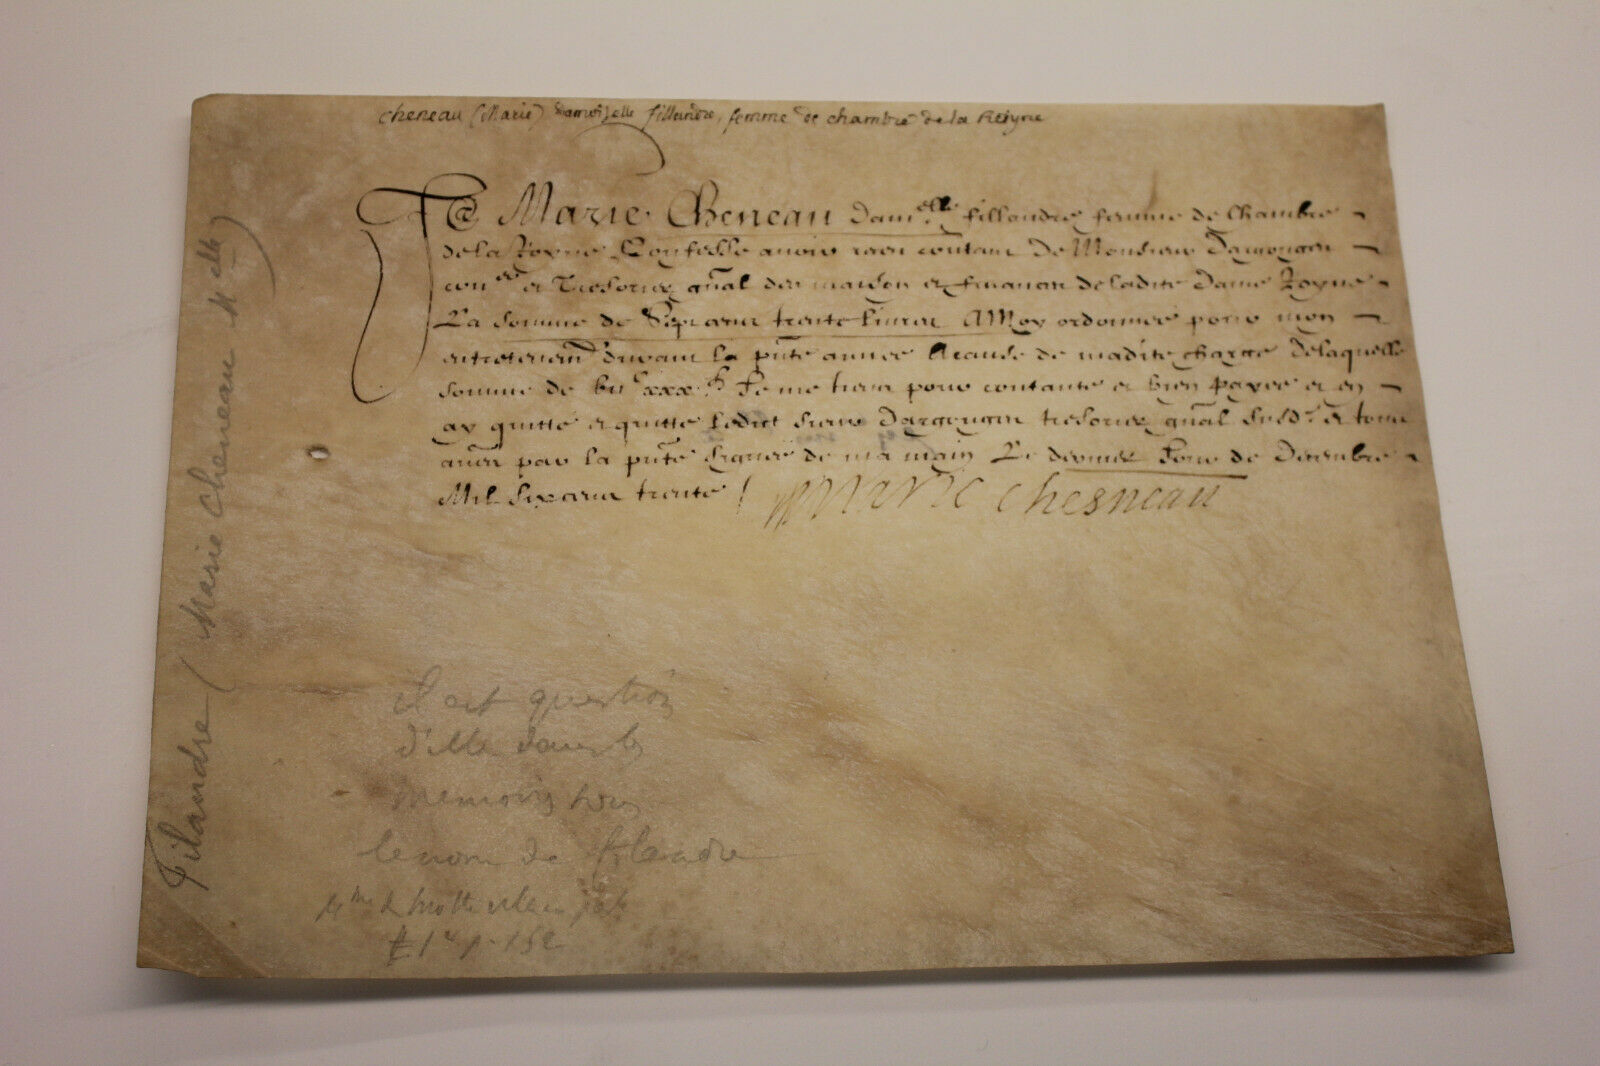 Cheneau (Marie) damoiselle fillandre, femme de chambre de la Reyne
Je Marie Cheneau Dam.elle fillandre femme de Chambre
de la Royne Confesse avoir receu contant de Monsieur Dargouges
con.er et Tresorier gñal des maison et finances de ladite Dame Royne
La somme de Sept cens trente Livres A Moy ordonnee pour mon
entretenem̃ durant la pñte annee Acause de madite charge Delaquelle
somme de vii.c xxx.lt Je me tiens pour contante et bien payee et en
ay quitté et quitte ledict sieur Dargouges tresorier gñal susd.t et tous
aues par la pñte signee de ma main Le dernier Jour de Decembre
Mil six cens trente
Marie Chesneau
Filandre (Marie Cheneau M elle)
il est question
d'elle dans les
memoires sous
le nom de filandre
M.me de Motteville
t 1er p. 152